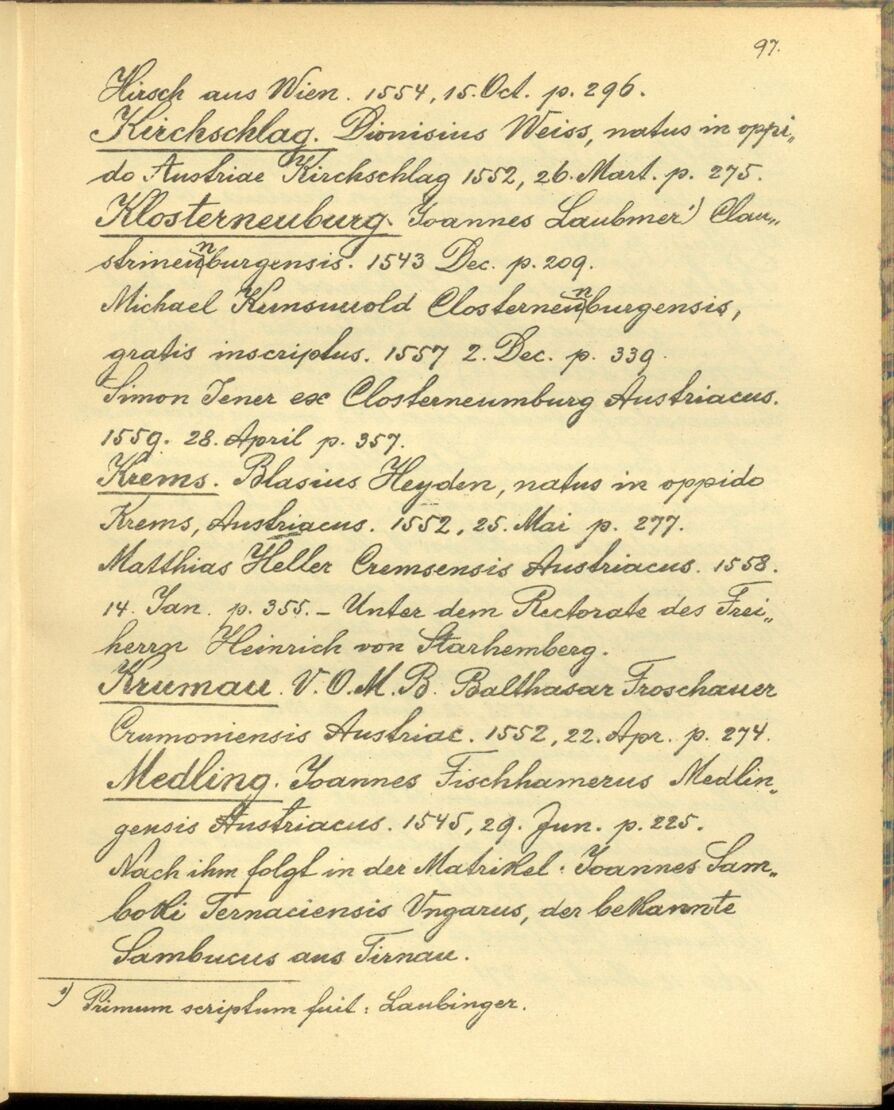 97.
Hirsch aus Wien. 1554, 15. Oct. p. 296.
Kirchschlag. Dionisius Weiss, natus in oppi„
do Austriae Kirchschlag 1552, 26. Mart. p. 275.
Klosterneuburg. Joannes Laubmer¹) Clau„
strineunburgensis. 1543 Dec. p. 209.
Michael Closterneunburgensis,
gratis inscriptus. 1557 2. Dec. p. 339.
Simon Jener ex Closterneumburg Austriacus.
1559. 28. April p. 357.
Krems. Blasius Heyden, natus in oppido
Krems, Austriacus. 1552, 25. Mai p. 277.
Matthias Heller Cremsensis Austriacus. 1558.
14. Jan. p. 355. – Unter dem Rectorate des Frei„
herrn Heinrich von Starhemberg.
Krumau. V.O.M.B. Balthasar Froschauer
Crumoniensis Austriac. 1552, 22. Apr. p. 274.
Medling. Joannes Fischhamerus Medlin„
gensis Austriacus. 1545, 29. Jun. p. 225.
Nach ihm folgt in der Matrikel: Joannes Sam„
boki Ternaciensis Vngarus, der bekannte
Sambucus aus Tirnau.
¹) Primum scriptum fuit: Laubinger.